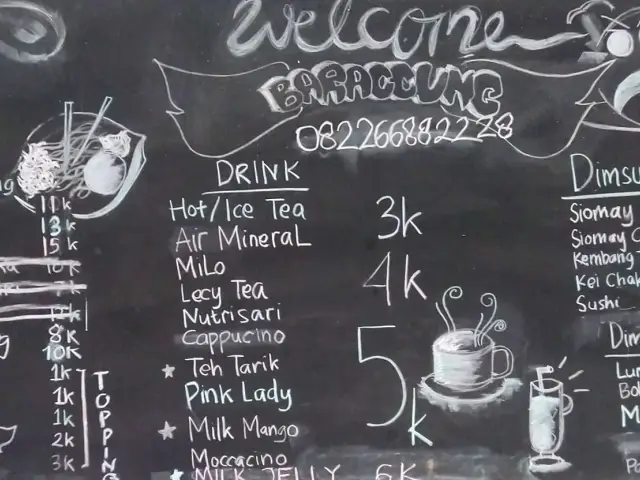 Welcome
BARACCUNG
082266882228
DRINK
Hot/Ice Tea
Air Mineral
3k
Milo
Lecy Tea
4k
Nutrisari
Cappucino
Teh Tarik
Pink Lady
Milk Mango
Moccacino
5k
MILK JELLY 6K
11k
13k
15k
8k
10k
1k
1k
1k
2k
3k
TOPPING
Dimsu
Siomay
Siomay C
Kembang T
Kei Chak
Sushi
Dim
Lu
Bo
M